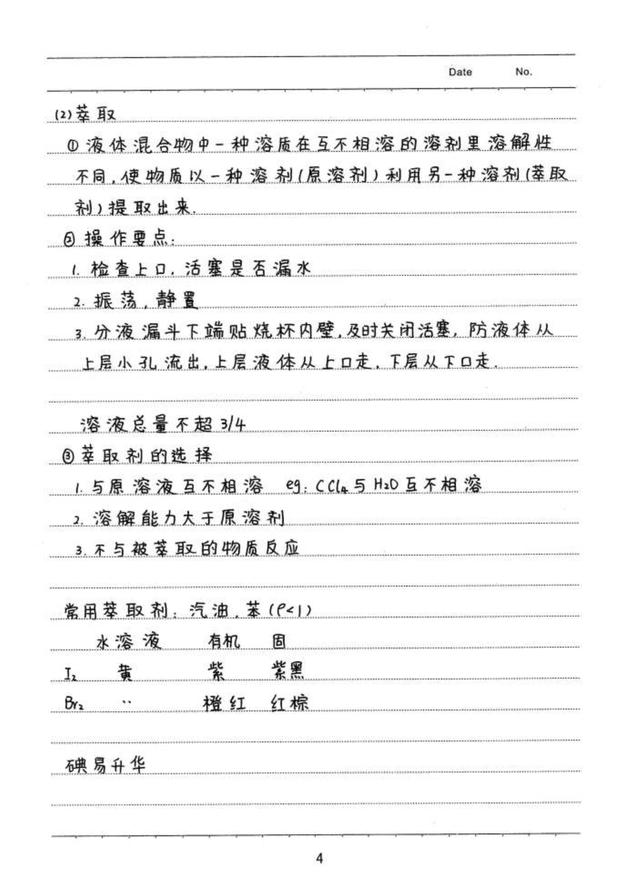 Date No.
(2)萃取
①液体混合物中一种溶质在互不相溶的溶剂里溶解性
不同,使物质以一种溶剂(原溶剂)利用另一种溶剂(萃取
剂)提取出来.
②操作要点:
1. 检查上口,活塞是否漏水
2. 振荡,静置
3. 分液漏斗下端贴烧杯内壁,及时关闭活塞,防液体从
上层小孔流出,上层液体从上口走,下层从下口走.
溶液总量不超3/4
③萃取剂的选择
1. 与原溶液互不相溶 eg: CCl₄与H₂O互不相溶
2. 溶解能力大于原溶剂
3. 不与被萃取的物质反应
常用萃取剂: 汽油,苯(ρ<1)
水溶液 有机 固
I₂ 黄 紫 紫黑
Br₂ ‥ 橙红 红棕
碘易升华
4